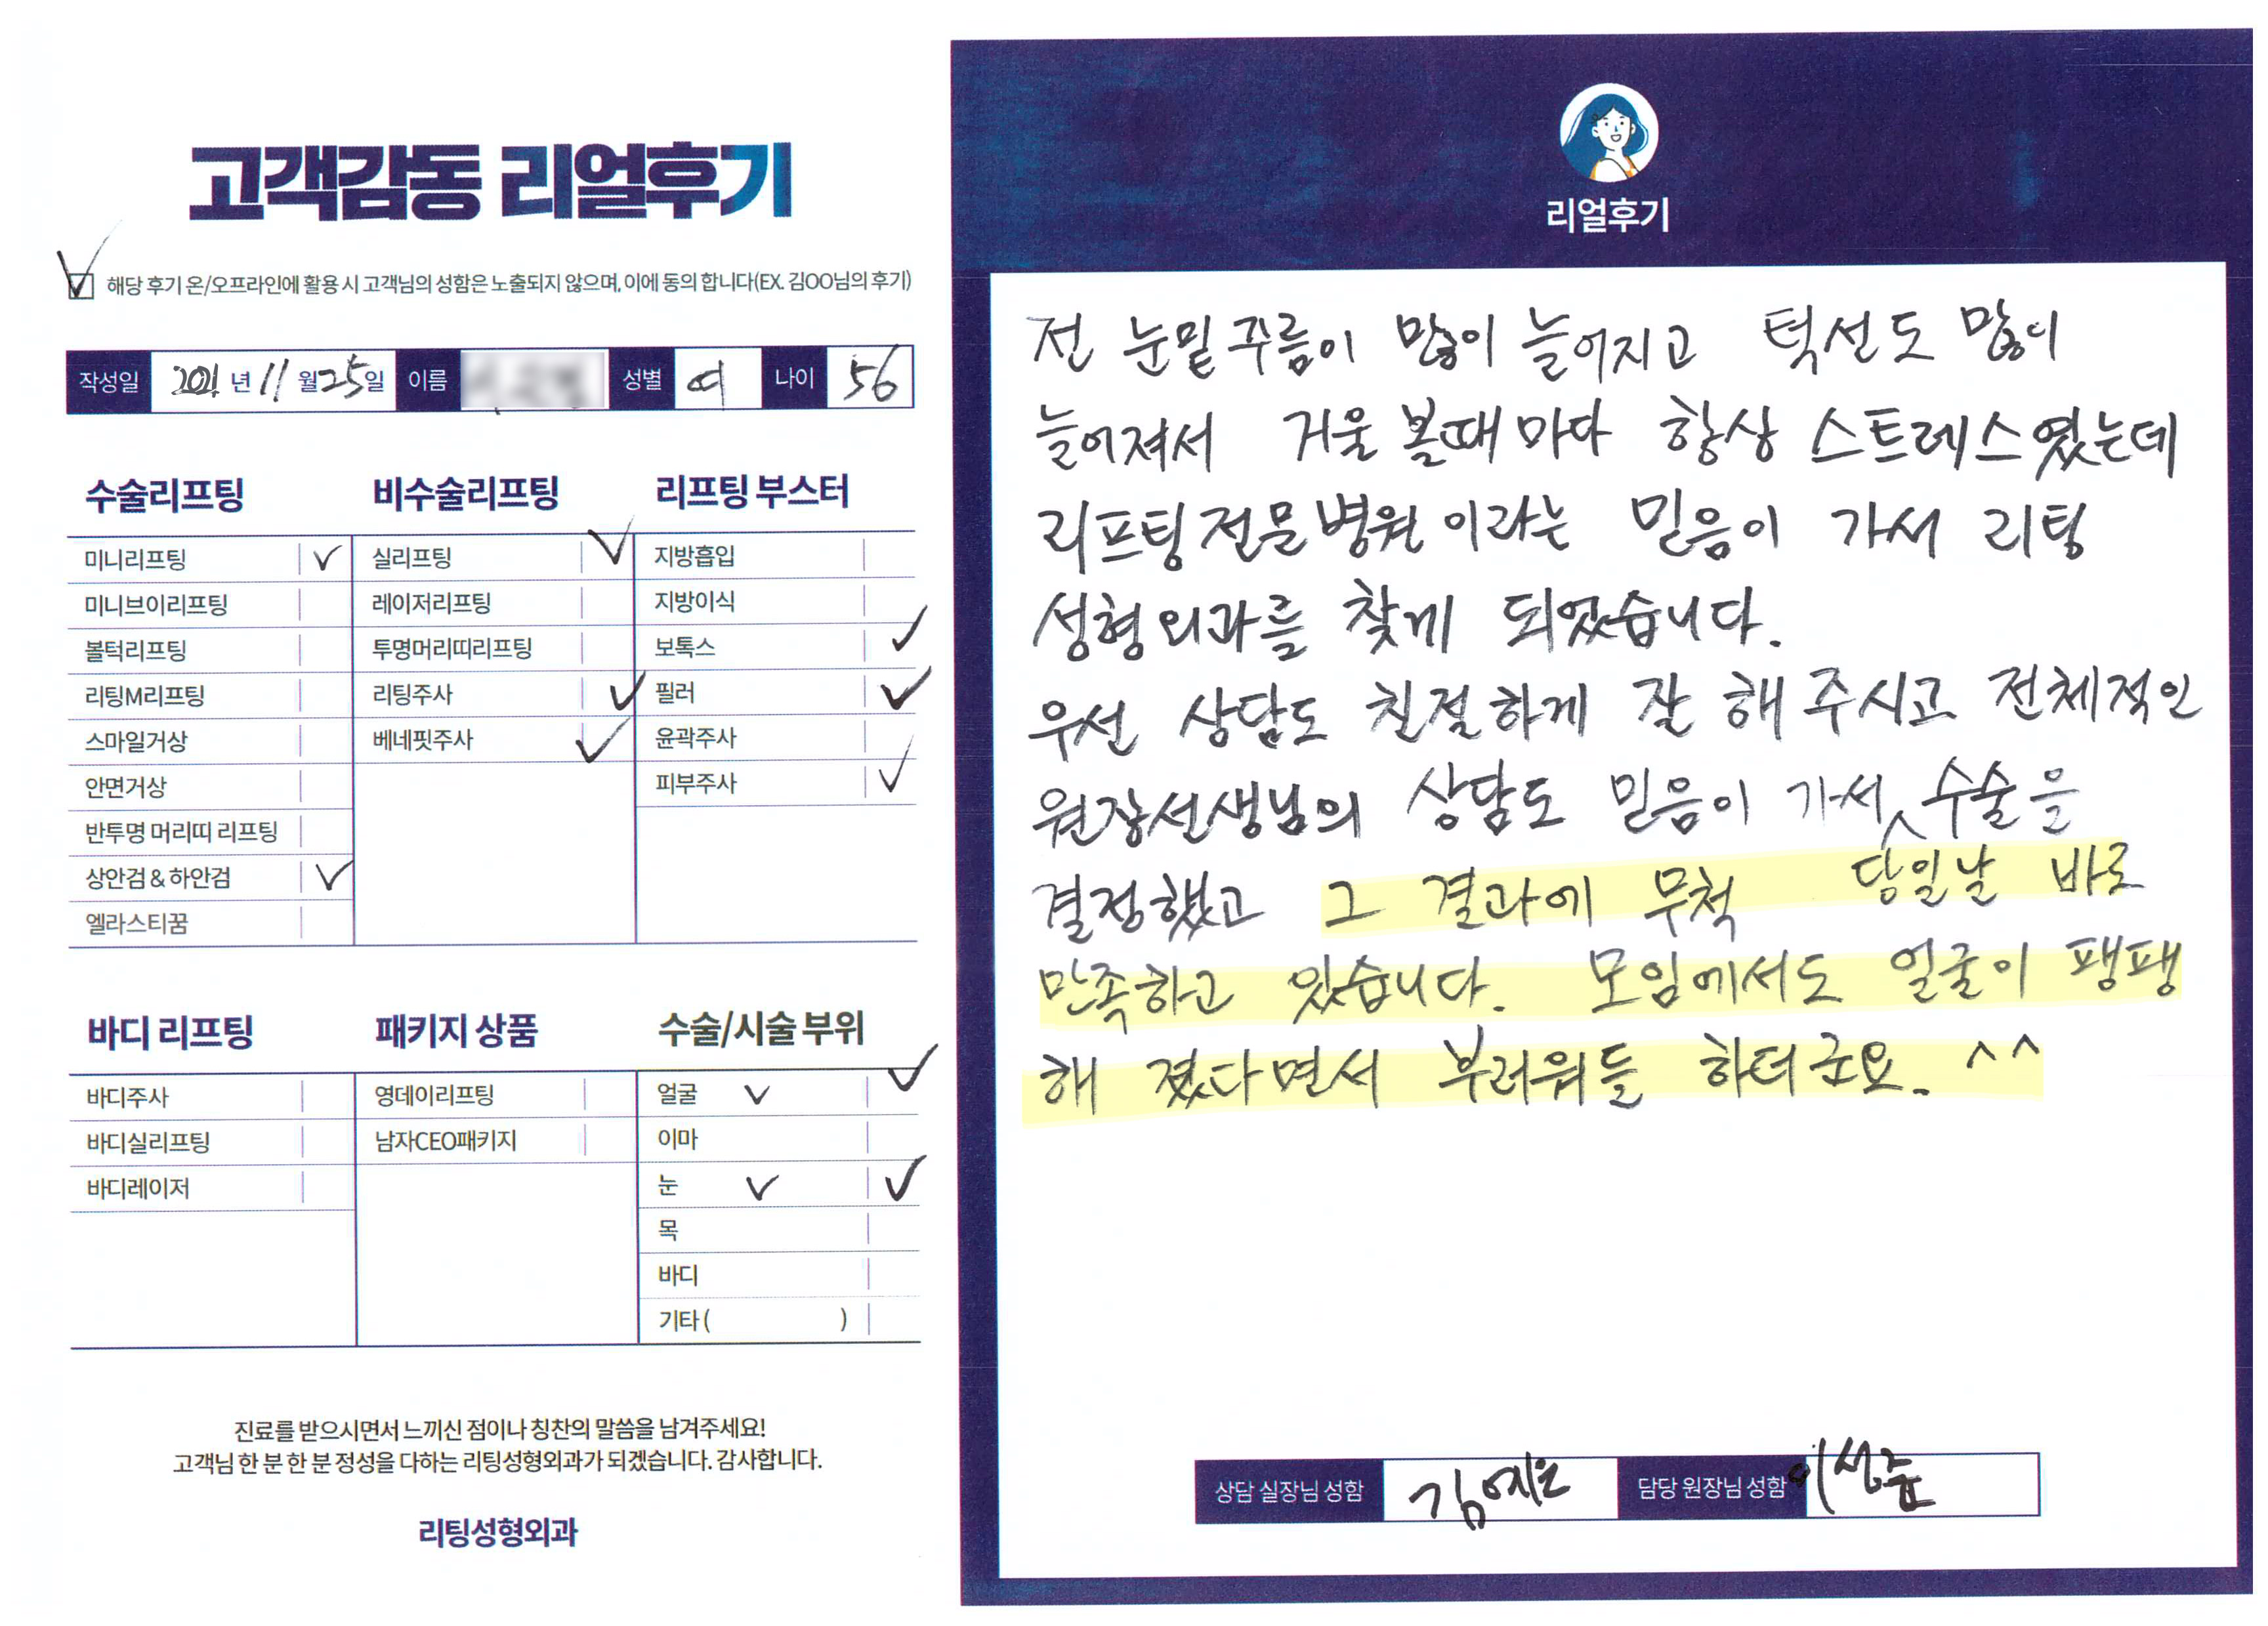 고객감동 리얼후기
해당 후기 온/오프라인에 활용 시 고객님의 성함은 노출되지 않으며, 이에 동의 합니다(EX. 김OO님의 후기)
작성일 2021 년 11 월 25 일 이름 성별 여 나이 56
수술리프팅
미니리프팅
미니브이리프팅
볼턱리프팅
리팅M리프팅
스마일거상
안면거상
반투명 머리띠 리프팅
상안검 & 하안검
엘라스티꿈
비수술리프팅
실리프팅
레이저리프팅
투명머리띠리프팅
리팅주사
베네핏주사
리프팅 부스터
지방흡입
지방이식
보톡스
필러
윤곽주사
피부주사
바디 리프팅
바디주사
바디실리프팅
바디레이저
패키지 상품
영데이리프팅
남자CEO패키지
수술/시술 부위
얼굴
이마
눈
목
바디
기타 ( )
진료를 받으시면서 느끼신 점이나 칭찬의 말씀을 남겨주세요!
고객님 한 분 한 분 정성을 다하는 리팅성형외과가 되겠습니다. 감사합니다.
리팅성형외과
리얼후기
전 눈밑 꾸름이 많이 늘어지고 턱선도 많이
늘어져서 거울 볼때마다 항상 스트레스였는데
리프팅전문병원이라는 믿음이 가서 리팅
성형외과를 찾게 되었습니다.
우선 상담도 친절하게 잘 해주시고 전체적인
원장선생님의 상담도 믿음이 가서 수술을
당일날 바로
결정했고 그 결과에 무척
만족하고 있습니다. 모임에서도 얼굴이 팽팽
해 졌다면서 부러워들 하더군요. ^^
상담 실장님 성함 김예은 담당 원장님 성함